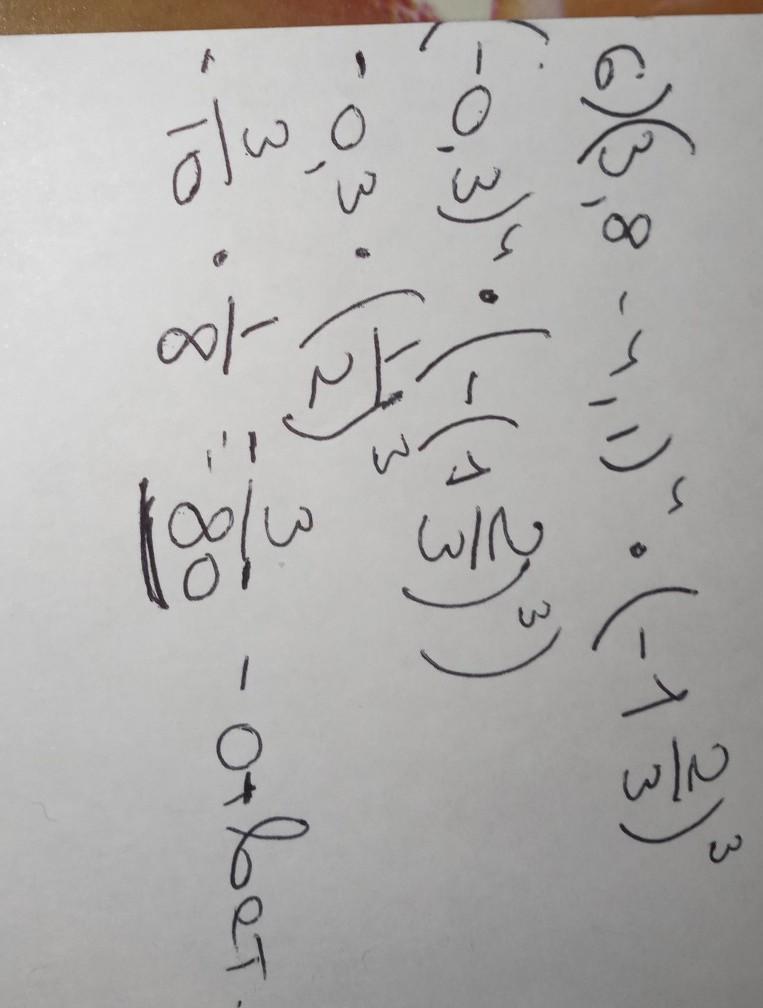 6) (3,8 - 4,1)⁴ · (-1 2/3)³
(-0,3)⁴ · (-(1 2/3)³)
- 0,3 · (1/2)³
- 3/10 · 1/8 = 3/80 - Ответ.